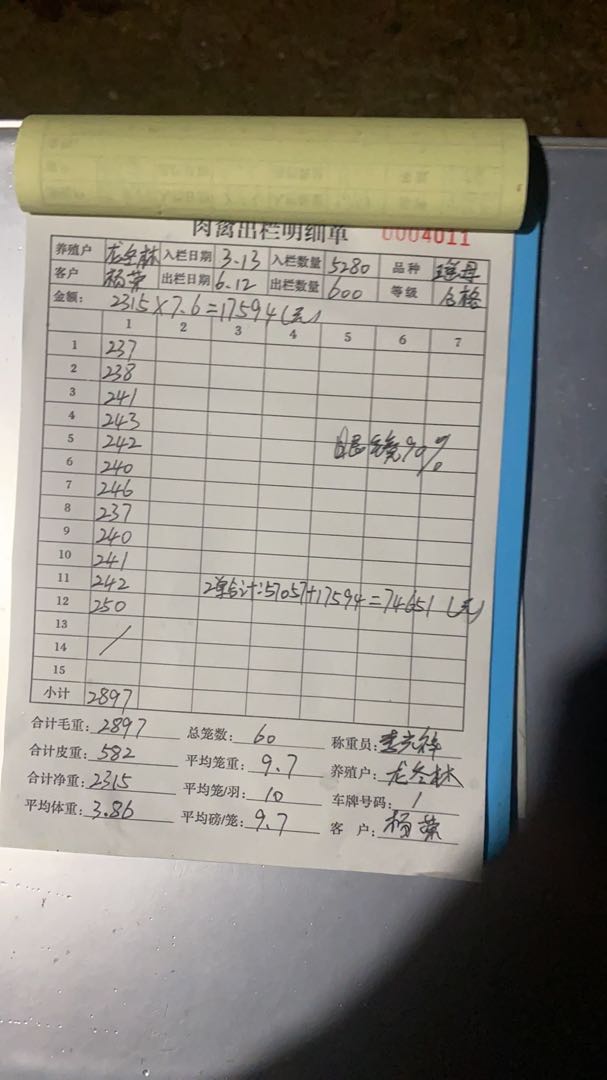 肉禽出栏明细单 0004011
养殖户 龙全林 入栏日期 3.13 入栏数量 5280 品种
客户 杨荣 出栏日期 6.12 出栏数量 600 等级 合格
金额: 2315×7.6=17594(元)
1 2 3 4 5 6 7
1 237
2 238
3 241
4 243
5 242 90%
6 240
7 246
8 237
9 240
10 241
11 242 2单合计:57057+17594=74651(元)
12 250
13
14 /
15
小计 2897
合计毛重: 2897 总笼数: 60 称重员:
合计皮重: 582 平均笼重: 9.7 养殖户: 龙全林
合计净重: 2315 平均笼/羽: 10 车牌号码: 1
平均体重: 3.86 平均磅/笼: 9.7 客 户: 杨荣